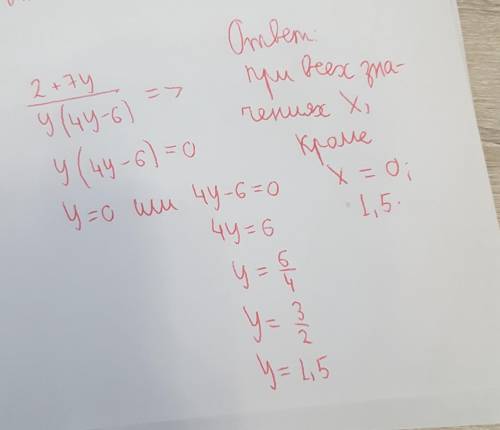 2+7y
y(4y-6) =>
y(4y-6)=0
y=0 или 4y-6=0
4y=6
y=6/4
y=3/2
y=1,5
Ответ:
при всех зна-
чениях x,
кроме
x=0;
1,5.